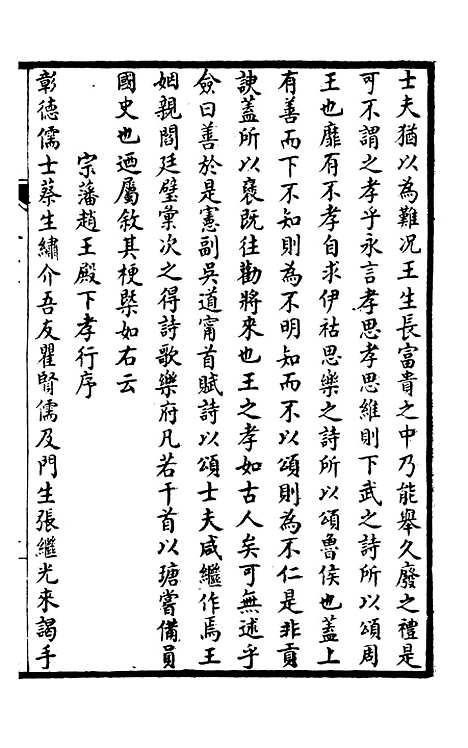 士夫猶以為難况王生長富貴之中乃能舉久廢之禮是
可不謂之孝乎永言孝思孝思維則下武之詩所以頌周
王也靡有不孝自求伊祜思樂之詩所以頌魯侯也蓋上
有善而下不知則為不明知而不以頌則為不仁是非貢
諛蓋所以襃既往勸將來也王之孝如古人矣可無述乎
僉曰善於是憲副吳道甯首賦詩以頌士夫咸繼作焉王
姻親閻廷璧彙次之得詩歌樂府凡若干首以瑭嘗備員
國史也迺屬敘其梗槩如右云
宗藩趙王殿下孝行序
彰德儒士蔡生繡介吾友瞿賢儒及門生張繼光來謁手